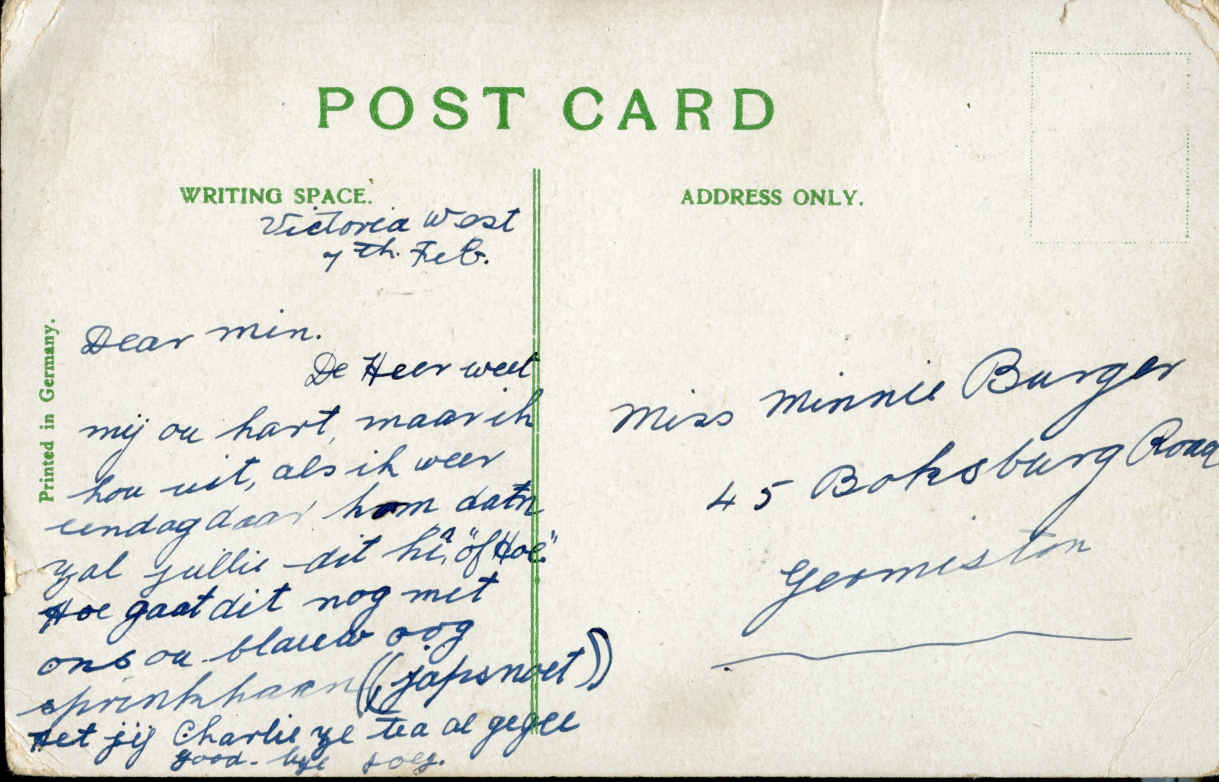 POST CARD
WRITING SPACE.
Victoria West
7th Feb.
Dear Min.
De Heer weet
mij ou hart, maar ik
hou uit, als ik weer
eendag daar kom dan
zal jullie dit hê, "of Hoe".
Hoe gaat dit nog met
ons ou blauw oog
sprinkhaan ((japsnoet))
Het jij Charlie ze tea al gegee
good-bye
Printed in Germany.
ADDRESS ONLY.
Miss Minnie Burger
45 Boksburg Road
Germiston